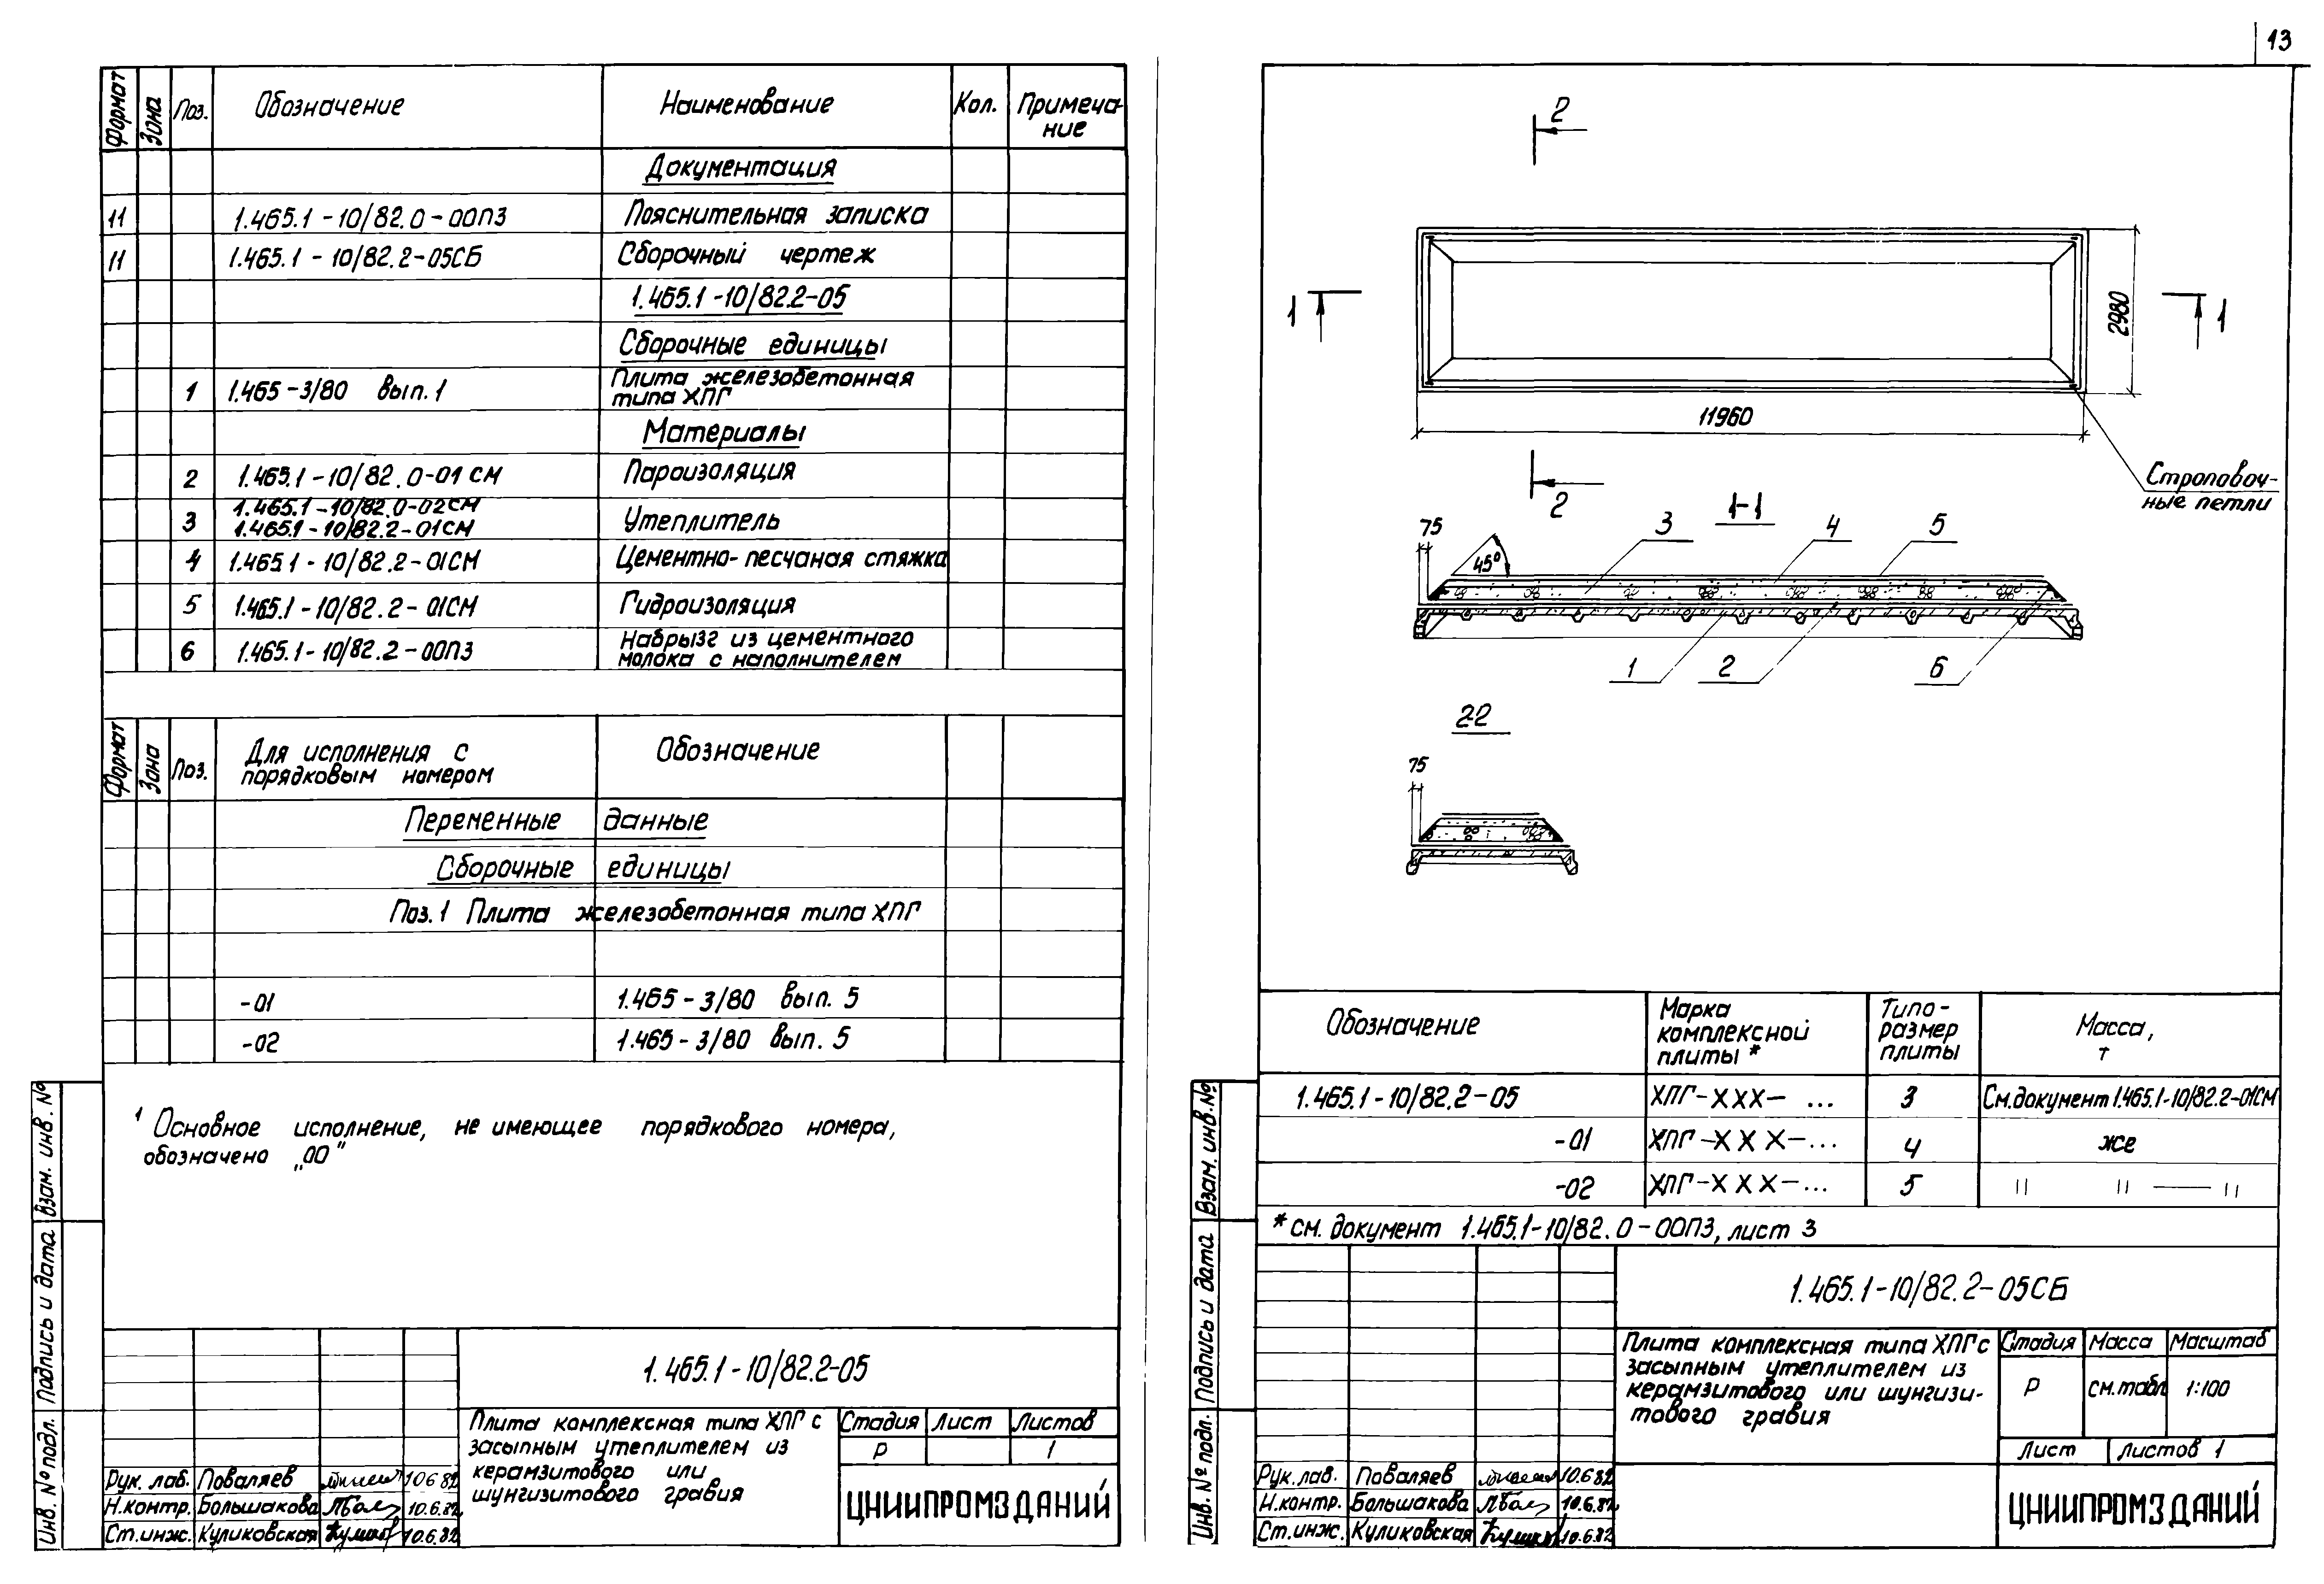 13
Формат Зона Поз. Обозначение Наименование Кол. Примеча-
ние
Документация
11 1.465.1-10/82.0-00ПЗ Пояснительная записка
11 1.465.1-10/82.2-05СБ Сборочный чертеж
1.465.1-10/82.2-05
Сборочные единицы
1 1.465-3/80 вып.1 Плита железобетонная
типа ХПГ
Материалы
2 1.465.1-10/82.0-01СМ Пароизоляция
3 1.465.1-10/82.0-02СМ
1.465.1-10/82.2-01СМ Утеплитель
4 1.465.1-10/82.2-01СМ Цементно-песчаная стяжка
5 1.465.1-10/82.2-01СМ Гидроизоляция
6 1.465.1-10/82.2-00ПЗ Набрызг из цементного
молока с наполнителем
Формат Зона Поз. Для исполнения с
порядковым номером Обозначение
Переменные данные
Сборочные единицы
Поз.1 Плита железобетонная типа ХПГ
-01 1.465-3/80 вып. 5
-02 1.465-3/80 вып. 5
1 Основное исполнение, не имеющее порядкового номера,
обозначено „00"
Взам. инв. №
Подпись и дата
Инв. № подл.
1.465.1-10/82.2-05
Плита комплексная типа ХПГ с
засыпным утеплителем из
керамзитового или
шунгизитового гравия
Стадия Лист Листов
Р 1
ЦНИИПРОМЗДАНИЙ
Рук. лаб. Поваляев 10.6.82
Н.контр. Большакова 10.6.82
Ст.инж. Куликовская 10.6.82
2
1 1
2980
11960
Строповоч-
ные петли
2
1-1
75
45°
3 4 5
1 2 6
2-2
75
Обозначение Марка
комплексной
плиты * Типо-
размер
плиты Масса,
т
1.465.1-10/82.2-05 ХПГ-ХХХ-... 3 См.документ 1.465.1-10/82.2-01СМ
-01 ХПГ-ХХХ-... 4 же
-02 ХПГ-ХХХ-... 5 " " — "
* см. документ 1.465.1-10/82.0-00ПЗ, лист 3
Взам. инв. №
Подпись и дата
Инв. № подл.
1.465.1-10/82.2-05СБ
Плита комплексная типа ХПГ с
засыпным утеплителем из
керамзитового или шунгизи-
тового гравия
Стадия Масса Масштаб
Р см.табл 1:100
Лист Листов 1
ЦНИИПРОМЗДАНИЙ
Рук.лав. Поваляев 10.6.82
Н.контр. Большакова 10.6.82
Ст.инж. Куликовская 10.6.82